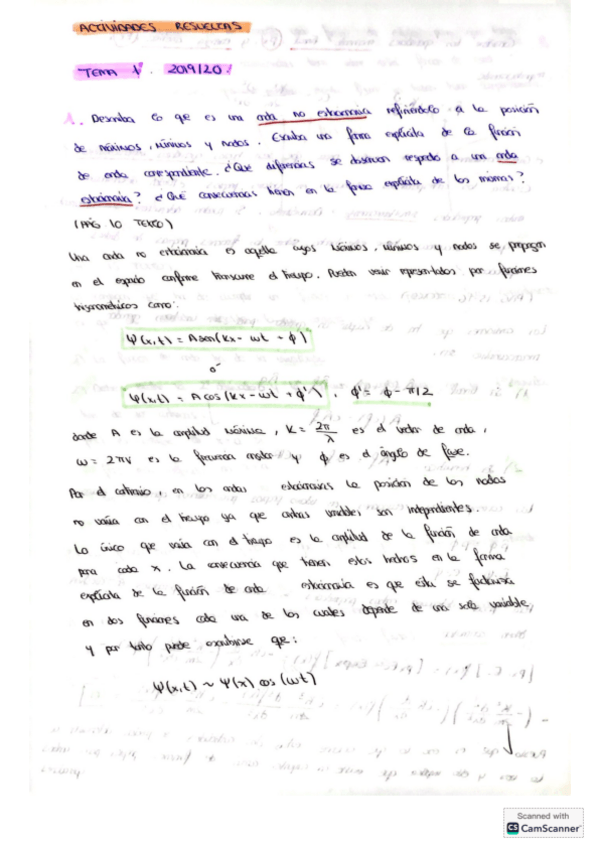 ACTIVIDADES RESUELTAS
TEMA 1. 2019/20.
1. Describa lo que es una onda no estacionaria refiriéndolo a la posición
de máximos, mínimos y nodos. Escriba una forma explícita de la función
de onda correspondiente. ¿Qué diferencias se observan respecto a una onda
estacionaria? ¿Qué consecuencias tienen en la forma explícita de las mismas?
(PÁG. 10 TEXTO)
Una onda no estacionaria es aquella cuyos máximos, mínimos y nodos se propagan
en el espacio conforme transcurre el tiempo. Pueden venir representados por funciones
trigonométricas como:
Ψ(x,t) = A sen(kx - ωt + ϕ)
o
Ψ(x,t) = A cos(kx - ωt + ϕ'), ϕ' = ϕ - π/2
donde A es la amplitud máxima, K = 2π/λ es el vector de onda,
ω = 2πν es la frecuencia angular y ϕ es el ángulo de fase.
Por el contrario, en las ondas estacionarias la posición de los nodos
no varía con el tiempo ya que ambas variables son independientes.
Lo único que varía con el tiempo es la amplitud de la función de onda
para cada x. La consecuencia que tienen estos hechos en la forma
explícita de la función de onda estacionaria es que ésta se factoriza
en dos funciones cada una de las cuales depende de una sola variable,
y por tanto puede escribirse que:
Ψ(x,t) ~ Ψ(x) cos(ωt)
Scanned with
CS CamScanner